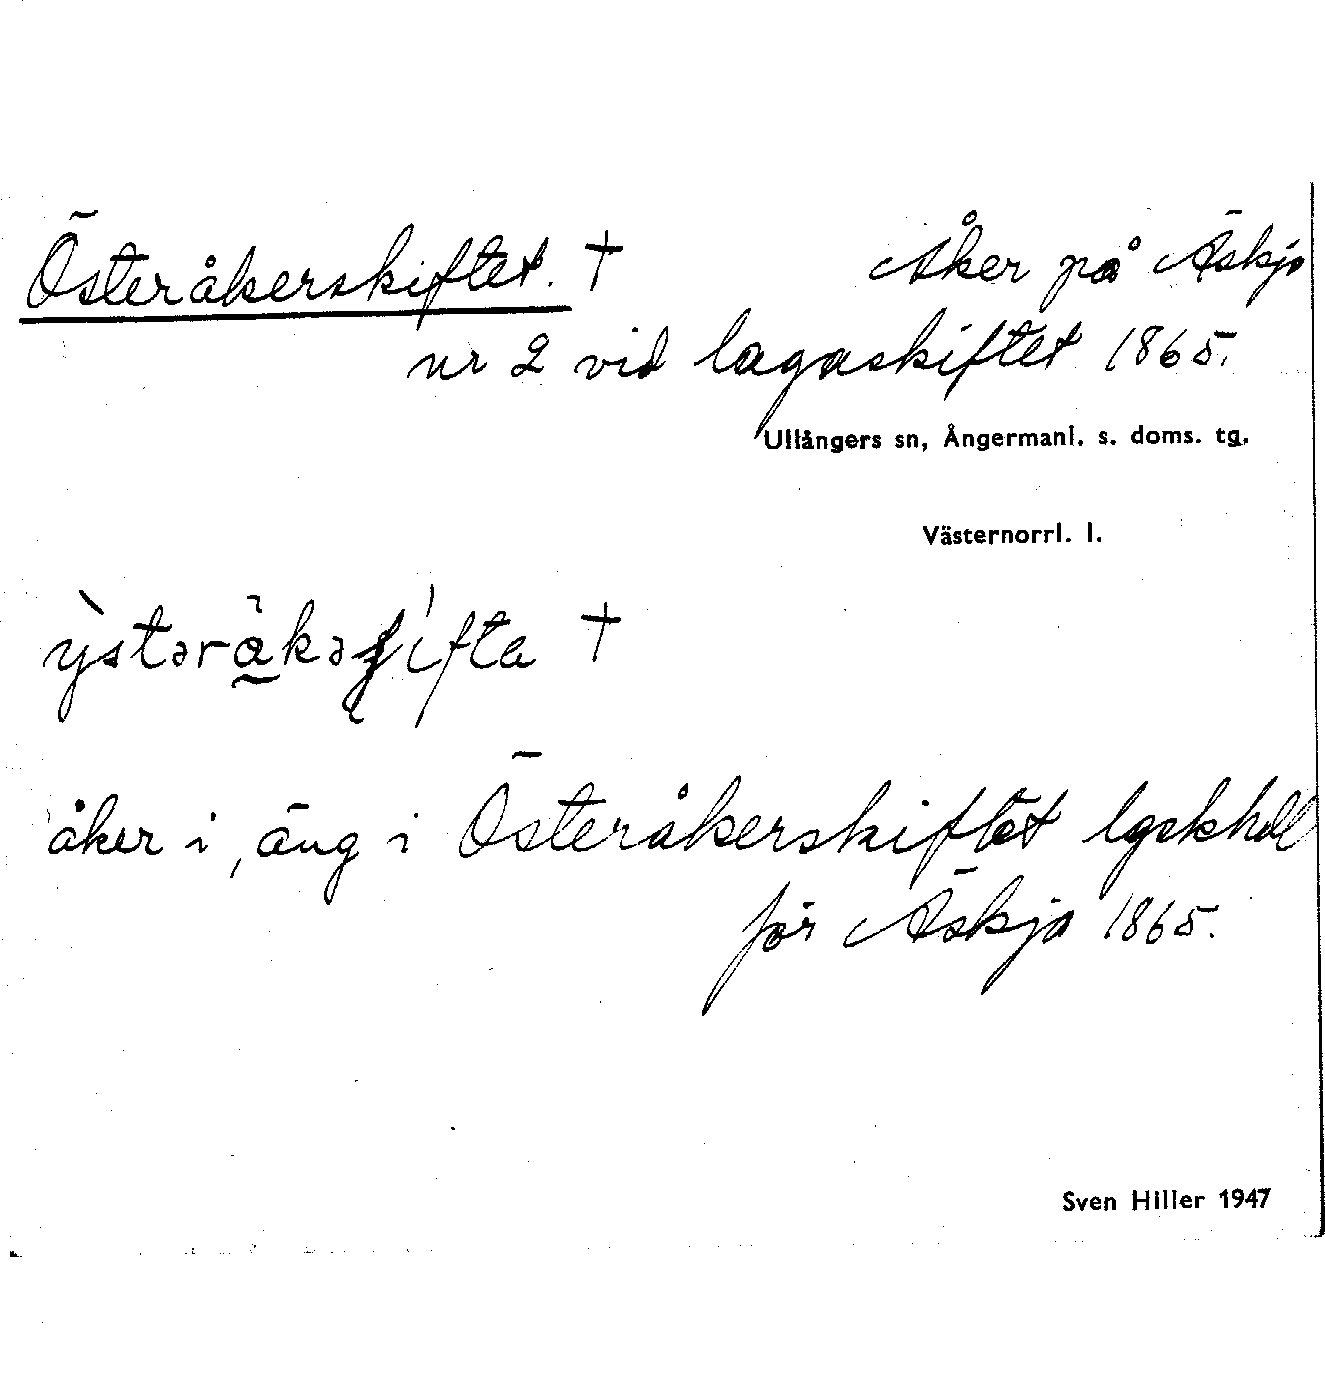 Österåkerskiftet. † Åker på Äskja
nr 2 vid lagaskiftet 1865.
Ullångers sn, Ångermanl. s. doms. tg.
Västernorrl. l.
†
åker i, äng i Österåkerskiftet lgskhdl
för Äskja 1865.
Sven Hiller 1947